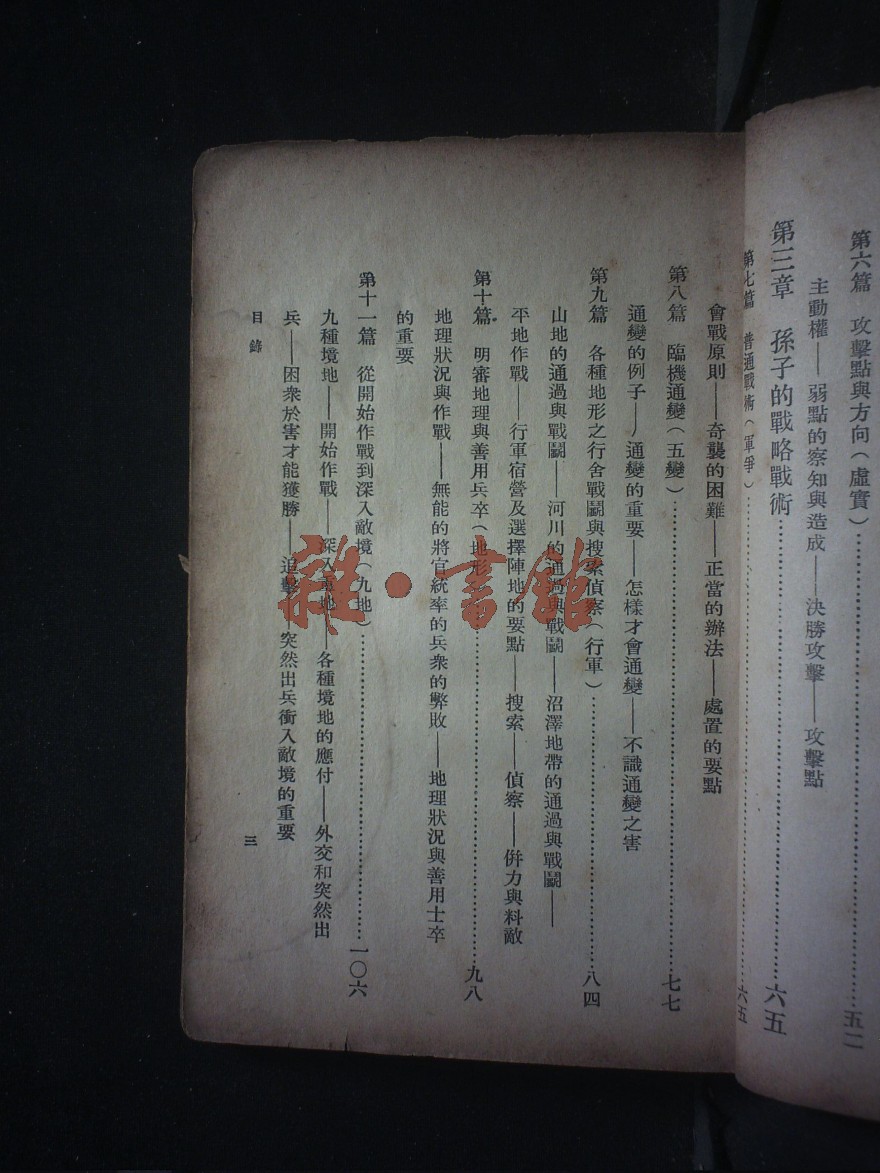 第六篇 攻擊點與方向(虛實)……五二
主動權——弱點的察知與造成——決勝攻擊——攻擊點
第三章 孫子的戰略戰術……六五
第七篇 普通戰術(軍爭)……六五
會戰原則——奇襲的困難——正當的辦法——處置的要點
第八篇 臨機通變(五變)……七七
通變的例子——通變的重要——怎樣才會通變——不識通變之害
第九篇 各種地形之行舍戰鬭與搜索偵察(行軍)……八四
山地的通過與戰鬭——河川的通過與戰鬭——沼澤地帶的通過與戰鬭——
平地作戰——行軍宿營及選擇陣地的要點——搜索——偵察——併力與料敵
第十篇 明審地理與善用兵卒(地形)……九八
地理狀況與作戰——無能的將官統率的兵衆的弊敗——地理狀況與善用士卒
的重要
第十一篇 從開始作戰到深入敵境(九地)……一〇六
九種境地——開始作戰——深入重地——各種境地的應付——外交和突然出
兵——困衆於害才能獲勝——追擊——突然出兵衝入敵境的重要
目錄
三
雜·書館